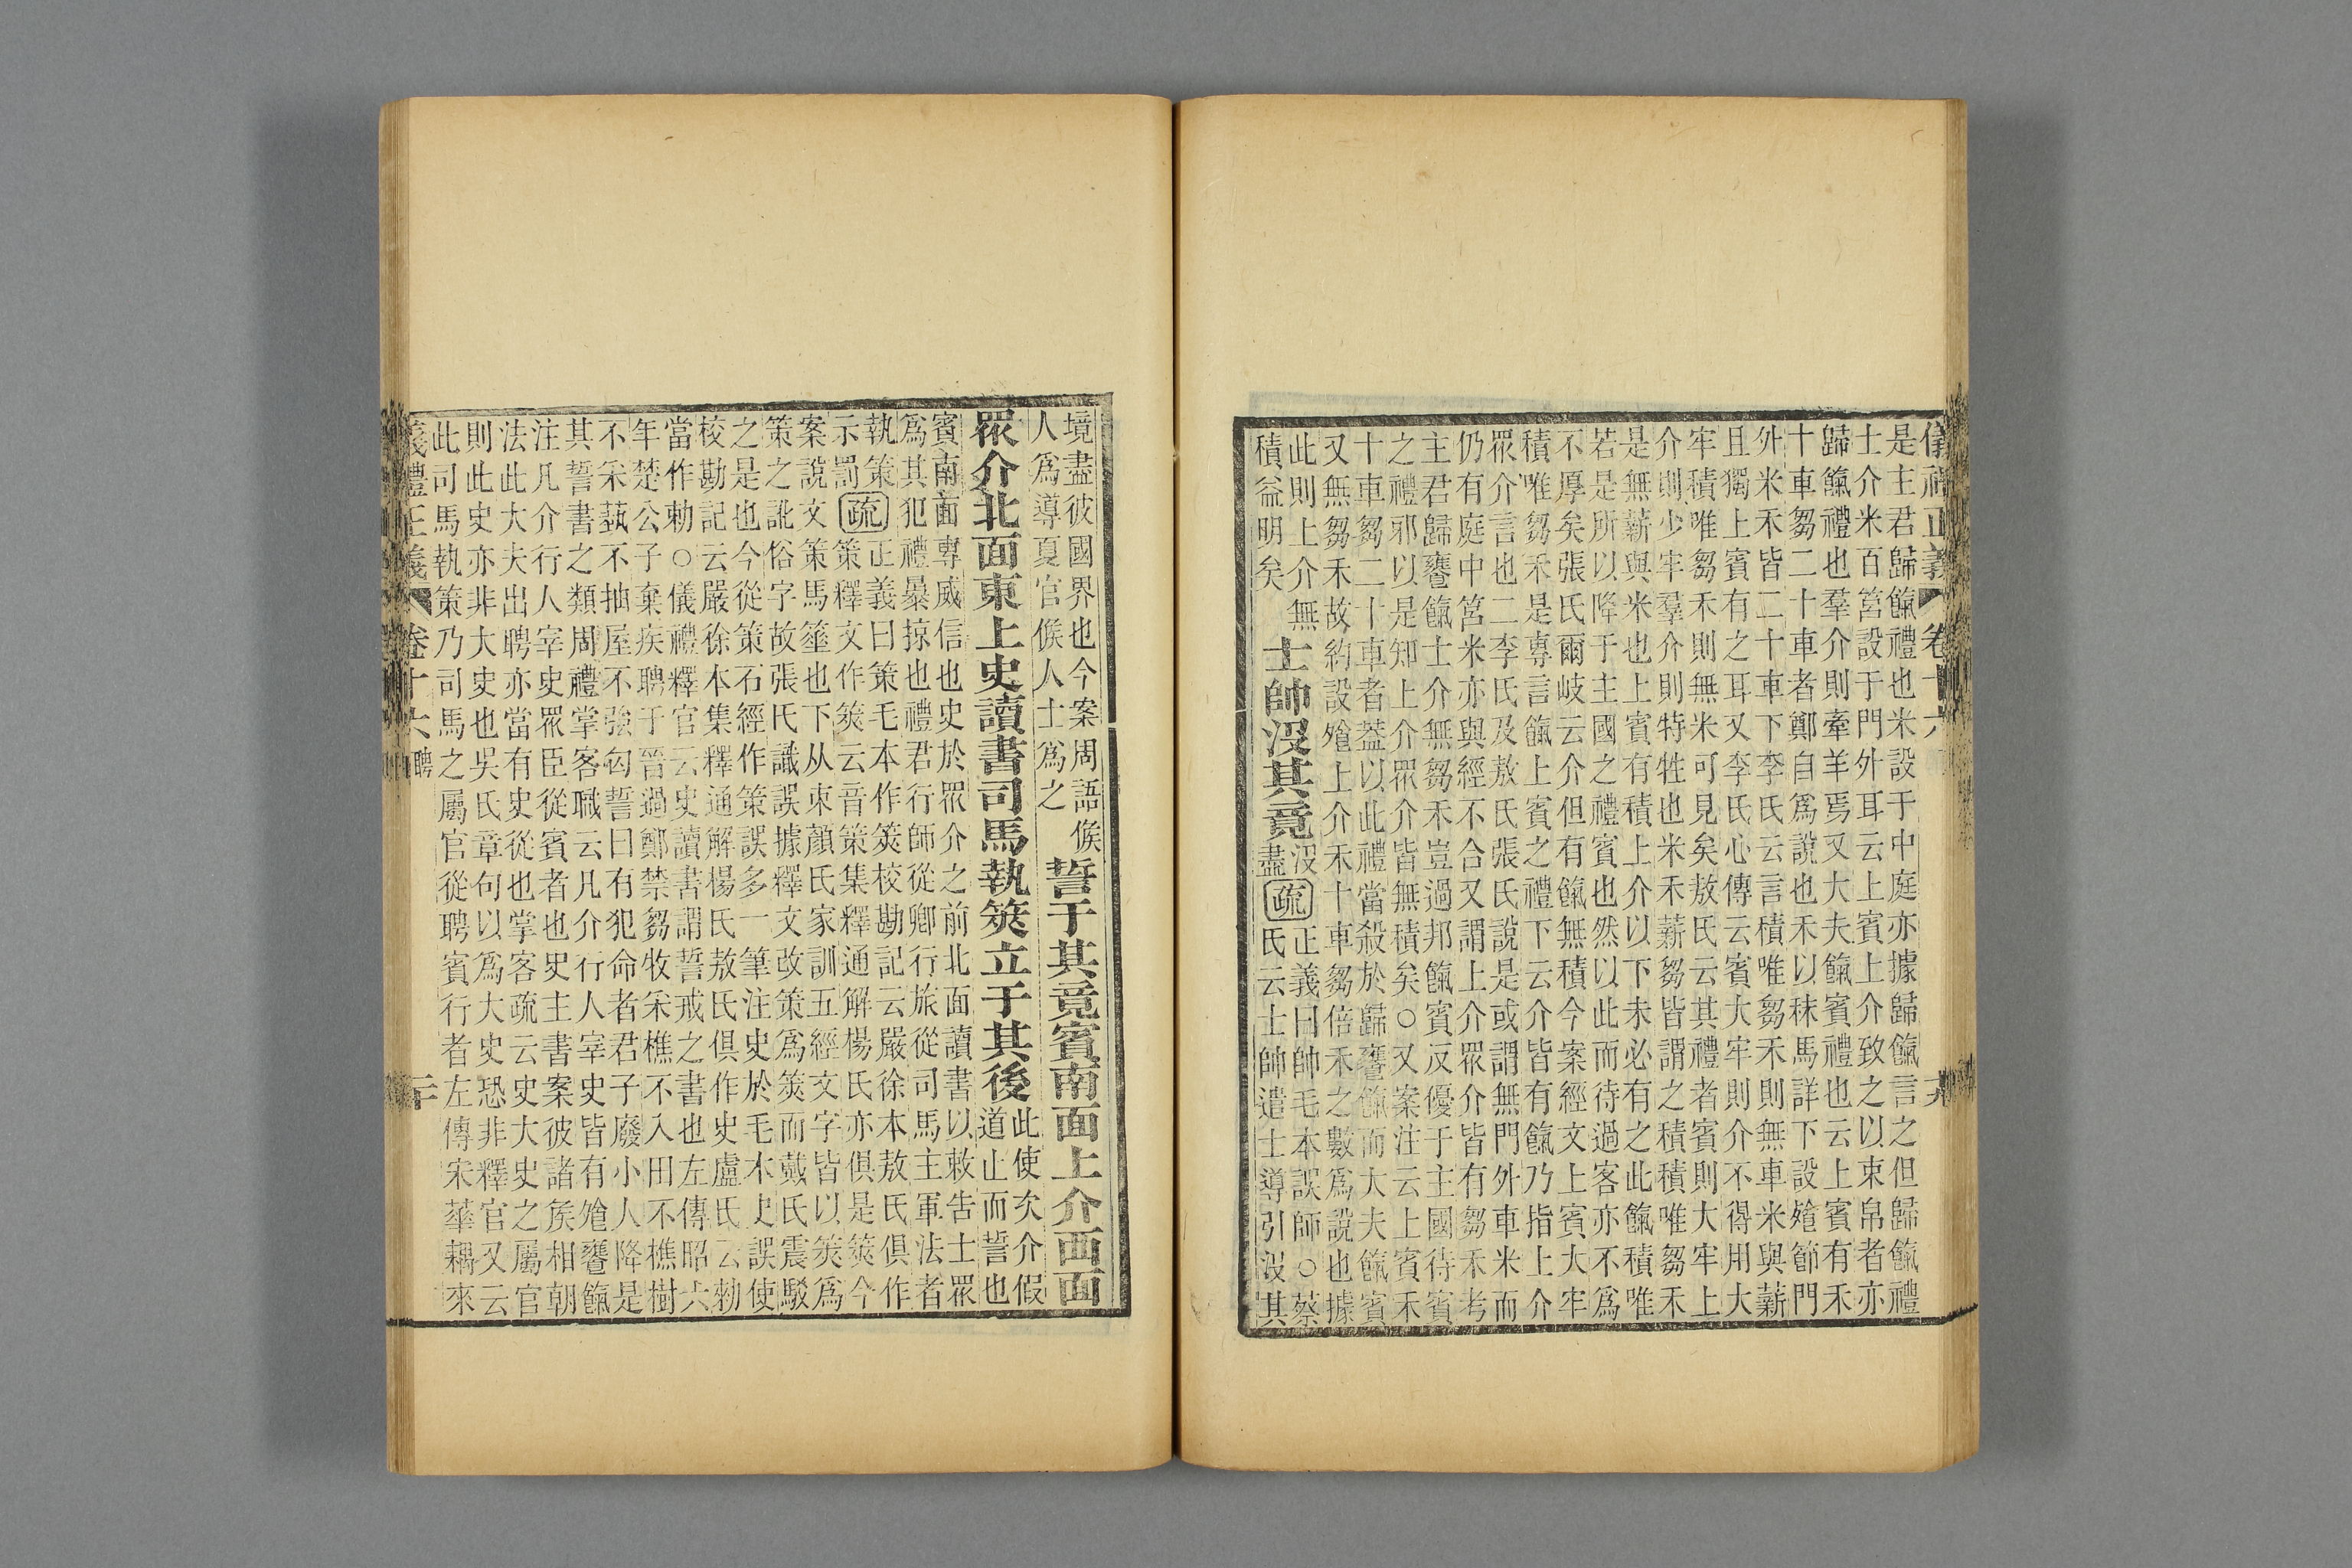 儀禮正義 卷十六
是主君歸餼禮也米設于中庭亦據歸餼言之但歸餼禮
士介米百筥設于門外耳云上賓上介致之以束帛者亦
歸餼禮也羣介則牽羊焉又大夫餼賓禮也云上賓有禾
十車芻二十車者鄭自爲說也禾以秣馬詳下設飧節門
外米禾皆二十車下李氏云言積唯芻禾則無車米與薪
且獨上賓有之耳又李氏心傳云賓大牢則介不得用大
牢積唯芻禾則無米可見矣敖氏云其禮者賓則大牢上
介則少牢羣介則特牲也米禾薪芻皆謂之積積唯芻禾
是無薪與米也上賓有積上介以下未必有之此餼積唯
若是所以降于主國之禮賓也然以此而待過客亦不爲
不厚矣張氏爾岐云介但有餼無積今案經文上賓大牢
積唯芻禾是專言餼上賓之禮下云介皆有餼乃指上介
眾介言也二李氏及敖氏張氏說是或謂無門外車米而
仍有庭中筥米亦與經不合又謂上介眾介皆有芻禾考
主君歸饔餼士介無芻禾豈過邦餼賓反優于主國待賓
之禮邪以是知上介眾介皆無積矣○又案注云上賓禾
十車芻二十車者蓋以此禮當殺於歸饔餼而大夫餼賓
又無芻禾故約設飧上介禾十車芻倍禾之數爲說也據
此則上介無
積益明矣
士帥沒其竟
沒
盡
疏
正義曰帥毛本誤師○蔡
氏云士帥遣士導引沒其
境盡彼國界也今案周語候
人爲導夏官候人士爲之
誓于其竟賓南面上介西面
眾介北面東上史讀書司馬執筴立于其後
此使次介假
道止而誓也
賓南面專威信也史於眾介之前北面讀書以敕告士眾
爲其犯禮暴掠也禮君行師從卿行旅從司馬主軍法者
執策
示罰
疏
正義曰策毛本作筴校勘記云嚴徐本敖氏俱作
策釋文作筴云音策集釋通解楊氏亦俱是筴今
案說文策馬箠也下从朿顏氏家訓五經文字皆以筴爲
策之訛俗字故張氏識誤據釋文改策爲筴而戴氏震駁
之是也今從策石經作策誤多一筆注史於毛本史誤使
校勘記云嚴徐本集釋通解楊氏敖氏俱作史盧氏云勑
當作勅○儀禮釋官云史讀書謂誓戒之書也左傳昭六
年楚公子棄疾聘于晉過鄭禁芻牧采樵不入田不樵樹
不采蓺不抽屋不強匄誓曰有犯命者君子廢小人降是
其誓書之類周禮掌客職云凡介行人宰史皆有飧饔餼
注凡介行人宰史眾臣從賓者也史主書案彼諸侯相朝
法此大夫出聘亦當有史從也掌客疏云史大史之屬官
則此史亦非大史也吳氏章句以爲大史恐非釋官又云
此司馬執策乃司馬之屬官從聘賓行者左傳宋華耦來
儀禮正義 卷十六 聘 二十